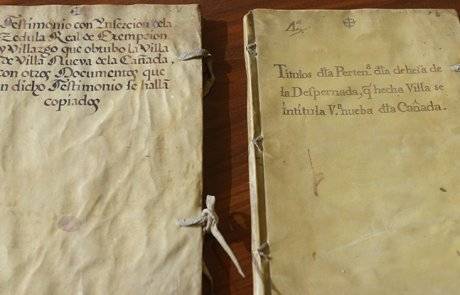 Testimonio con Ynsercion dela
Zedula Real de Exempcion
y Villazgo que obtubo la Villa
de Villa Nueva de la Cañada.
con otros Documentos que
en dicho Testimonio se hallan
copiados
Titulos dla Perten.ª dla dehesa de
la Despernada, q̃ hecha Villa se
intitula V.ª nueba dla Cañada.